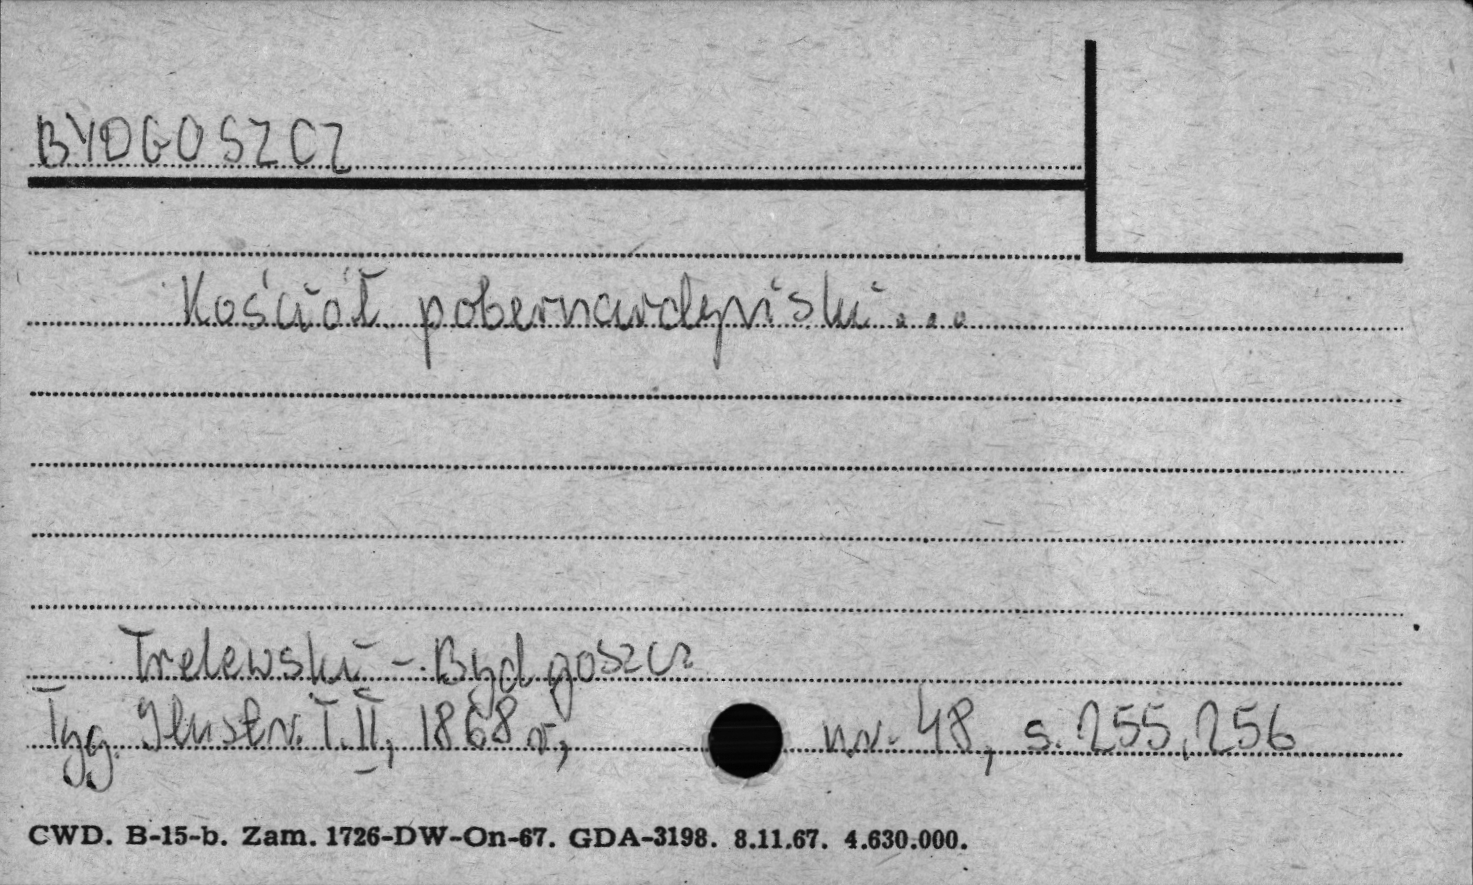 BYDGOSZCZ
Kościół pobernardyński...
Trelewski - Bydgoszcz
Tyg. Ilustr. T.II, 1868 r, nr. 48, s. 255, 256
CWD. B-15-b. Zam. 1726-DW-On-67. GDA-3198. 8.11.67. 4.630.000.